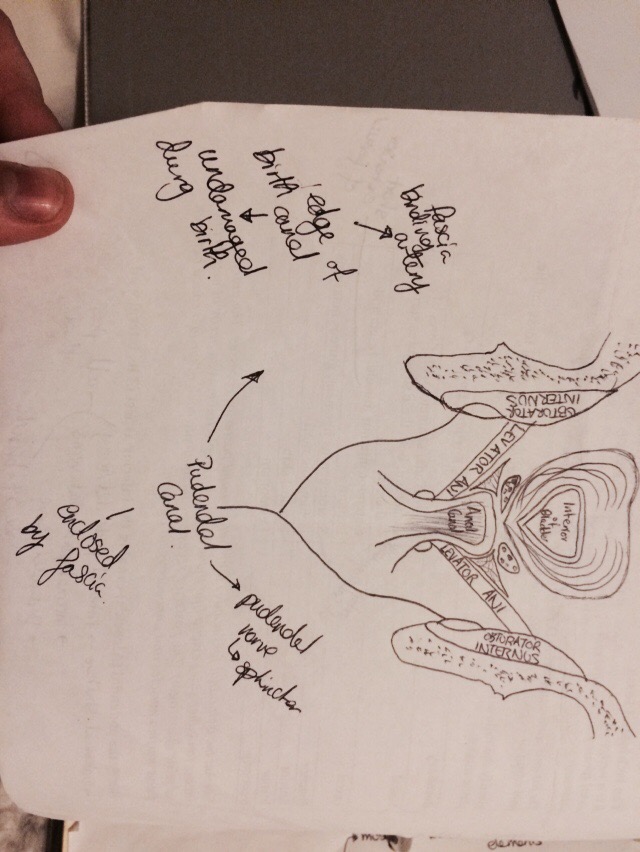 fascia
binding
artery
edge of
birth canal
undamaged
durg birth.
Pudendal
Canal.
enclosed
by fascia.
pudendal
nerve
sphincter
OBTURATOR
INTERNUS
LEVATOR ANI
Interior
of
Bladder
Anal
Canal
LEVATOR ANI
OBTURATOR
INTERNUS